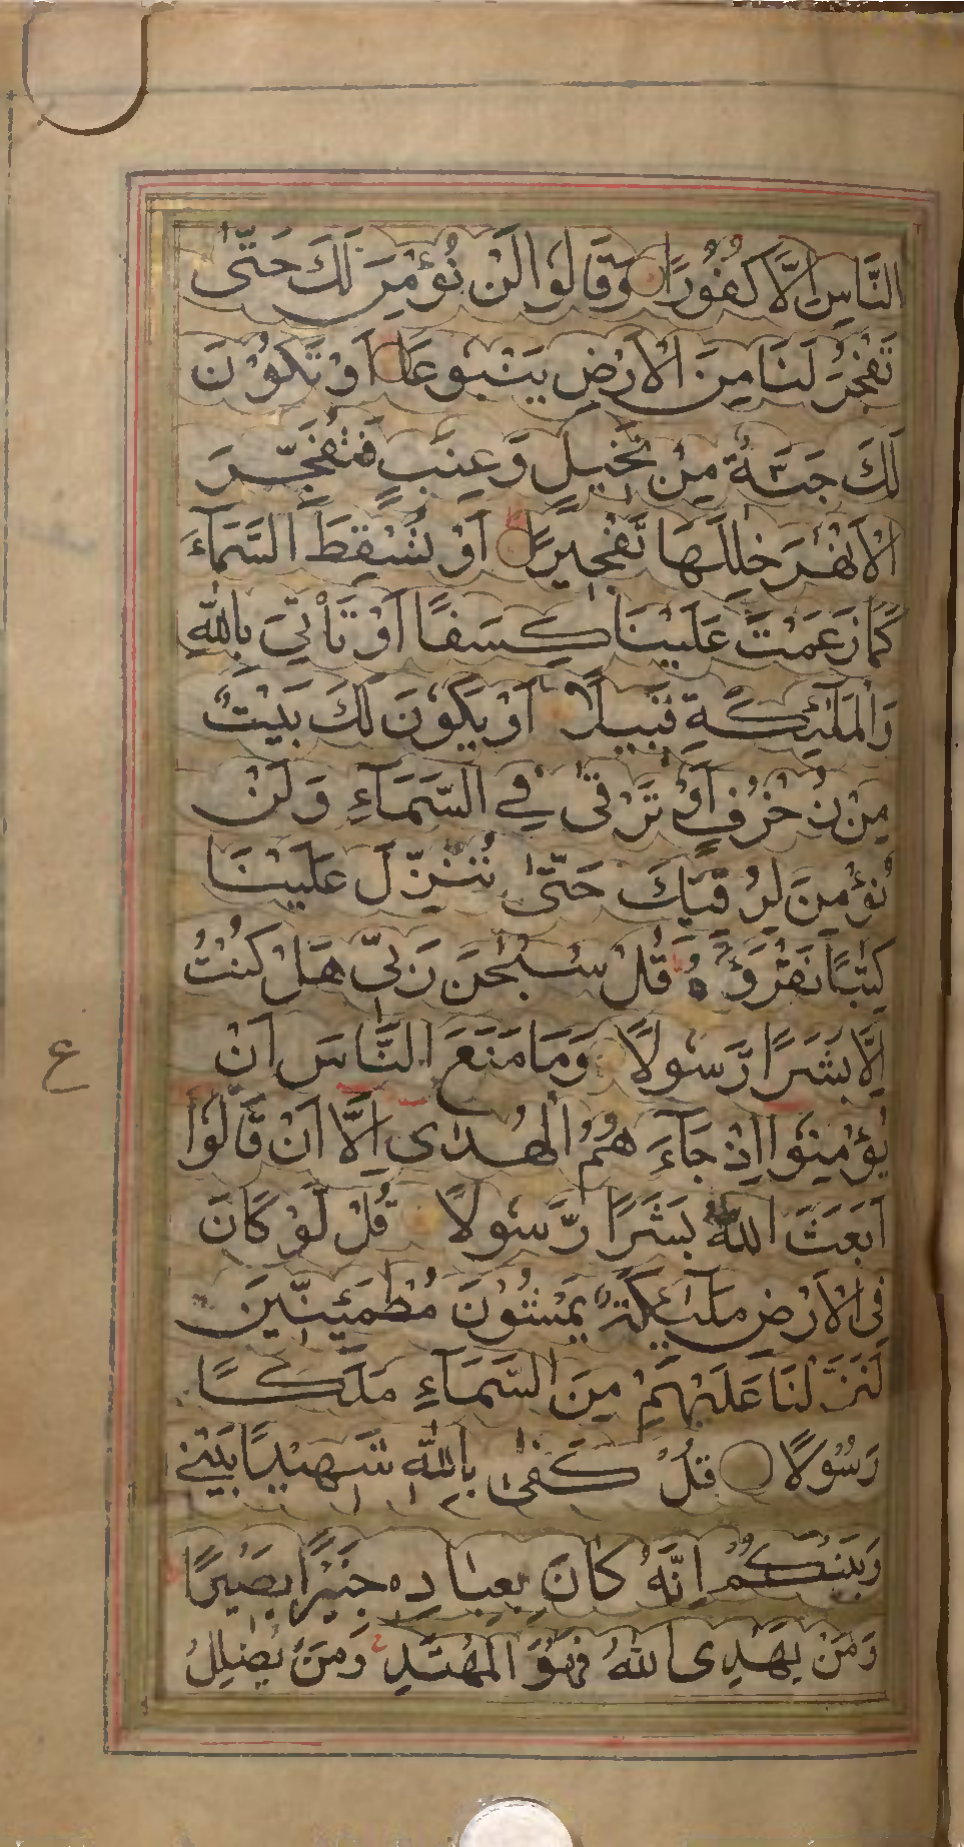 النَّاسِ اِلَّا كُفُوْرًا وَقَالُوْا لَنْ نُؤْمِنَ لَكَ حَتّٰى
تَفْجُرَ لَنَا مِنَ الْاَرْضِ يَنْبُوْعًا اَوْ تَكُوْنَ
لَكَ جَنَّةٌ مِنْ نَخِيلٍ وَعِنَبٍ فَتُفَجِّرَ
الْاَنْهٰرَ خِلٰلَهَا تَفْجِيْرًا اَوْ تُسْقِطَ السَّمَآءَ
كَمَا زَعَمْتَ عَلَيْنَا كِسَفًا اَوْ تَأْتِيَ بِاللّٰهِ
وَالْمَلٰٓئِكَةِ قَبِيلًا اَوْ يَكُوْنَ لَكَ بَيْتٌ
مِنْ زُخْرُفٍ اَوْ تَرْقٰى فِي السَّمَآءِ وَلَنْ
نُؤْمِنَ لِرُقِيِّكَ حَتّٰى تُنَزِّلَ عَلَيْنَا
كِتٰبًا نَقْرَؤُهٗ قُلْ سُبْحٰنَ رَبِّيْ هَلْ كُنْتُ
اِلَّا بَشَرًا رَّسُوْلًا وَمَا مَنَعَ النَّاسَ اَنْ
يُؤْمِنُوْا اِذْ جَآءَهُمُ الْهُدٰى اِلَّا اَنْ قَالُوْا
اَبَعَثَ اللّٰهُ بَشَرًا رَّسُوْلًا قُلْ لَوْ كَانَ
فِي الْاَرْضِ مَلٰٓئِكَةٌ يَمْشُوْنَ مُطْمَئِنِّيْنَ
لَنَزَّلْنَا عَلَيْهِمْ مِنَ السَّمَآءِ مَلَكًا
رَسُوْلًا قُلْ كَفٰى بِاللّٰهِ شَهِيْدًا بَيْنِيْ
وَبَيْنَكُمْ اِنَّهٗ كَانَ بِعِبَادِهٖ خَبِيْرًا بَصِيْرًا
وَمَنْ يَهْدِى اللّٰهُ فَهُوَ الْمُهْتَدِ وَمَنْ يُضْلِلْ
ع